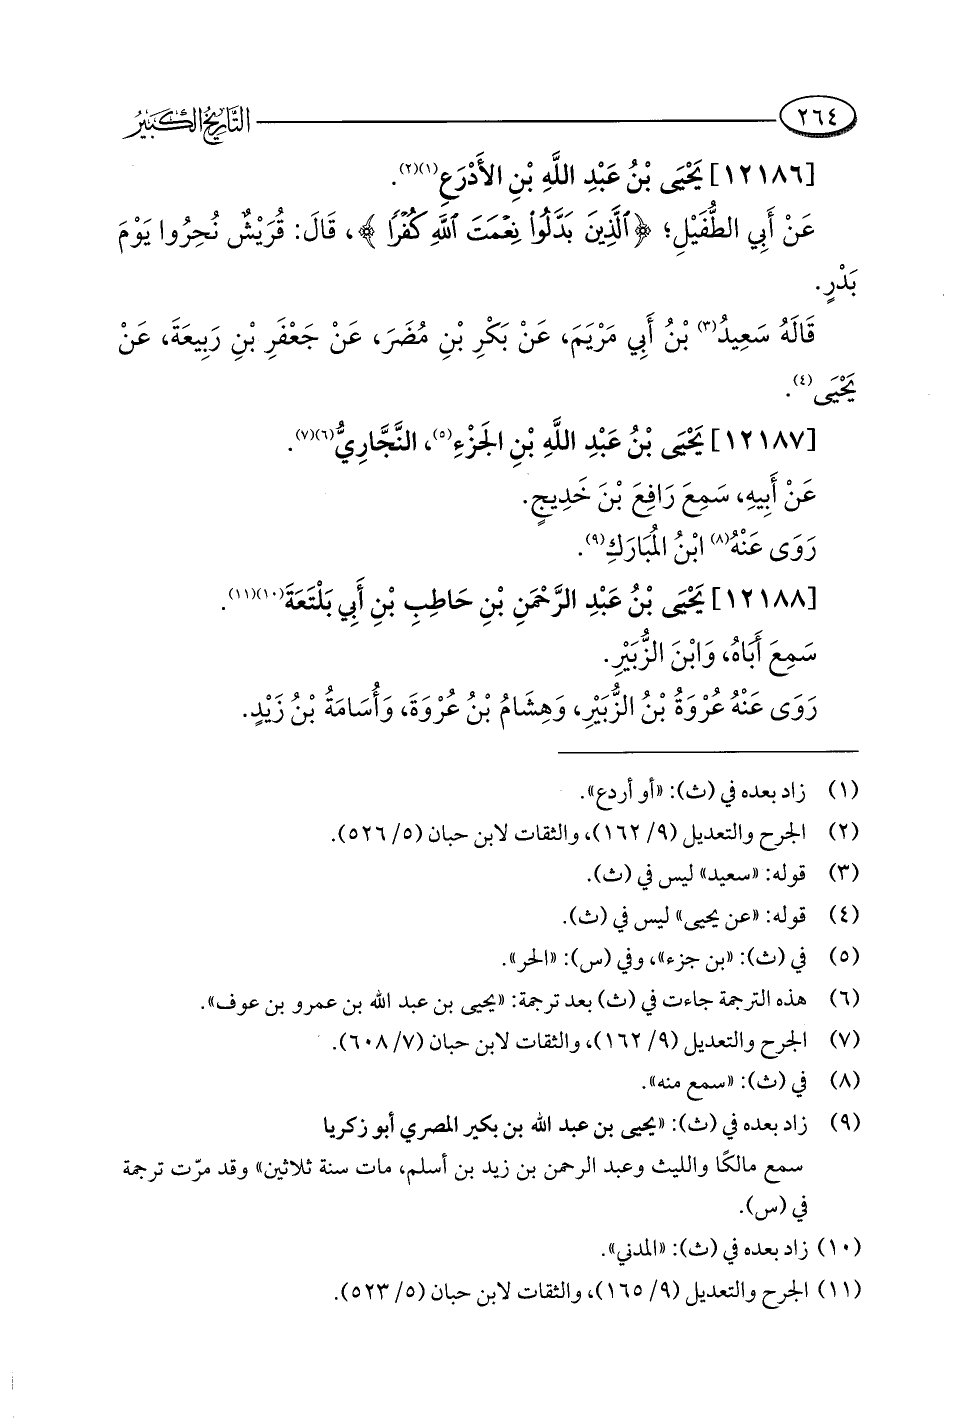 ٢٦٤ التَّارِيخُ الكَبِيرُ
[١٢١٨٦] يَحْيَى بْنُ عَبْدِ اللَّهِ بْنِ الأَدْرَعِ(١)(٢).
عَنْ أَبِي الطُّفَيْلِ؛ ﴿ٱلَّذِينَ بَدَّلُوا۟ نِعْمَتَ ٱللَّهِ كُفْرًا﴾، قَالَ: قُرَيْشٌ نُحِرُوا يَوْمَ
بَدْرٍ.
قَالَهُ سَعِيدُ(٣) بْنُ أَبِي مَرْيَمَ، عَنْ بَكْرِ بْنِ مُضَرَ، عَنْ جَعْفَرِ بْنِ رَبِيعَةَ، عَنْ
يَحْيَى(٤).
[١٢١٨٧] يَحْيَى بْنُ عَبْدِ اللَّهِ بْنِ الجَزْءِ(٥)، النَّجَّارِيُّ(٦)(٧).
عَنْ أَبِيهِ، سَمِعَ رَافِعَ بْنَ خَدِيجٍ.
رَوَى عَنْهُ(٨) ابْنُ المُبَارَكِ(٩).
[١٢١٨٨] يَحْيَى بْنُ عَبْدِ الرَّحْمَنِ بْنِ حَاطِبِ بْنِ أَبِي بَلْتَعَةَ(١٠)(١١).
سَمِعَ أَبَاهُ، وَابْنَ الزُّبَيْرِ.
رَوَى عَنْهُ عُرْوَةُ بْنُ الزُّبَيْرِ، وَهِشَامُ بْنُ عُرْوَةَ، وَأُسَامَةُ بْنُ زَيْدٍ.
(١) زاد بعده في (ث): «أو أردع».
(٢) الجرح والتعديل (٩/ ١٦٢)، والثقات لابن حبان (٥/ ٥٢٦).
(٣) قوله: «سعيد» ليس في (ث).
(٤) قوله: «عن يحيى» ليس في (ث).
(٥) في (ث): «بن جزء»، وفي (س): «الحر».
(٦) هذه الترجمة جاءت في (ث) بعد ترجمة: «يحيى بن عبد الله بن عمرو بن عوف».
(٧) الجرح والتعديل (٩/ ١٦٢)، والثقات لابن حبان (٧/ ٦٠٨).
(٨) في (ث): «سمع منه».
(٩) زاد بعده في (ث): «يحيى بن عبد الله بن بكير المصري أبو زكريا
سمع مالكًا والليث وعبد الرحمن بن زيد بن أسلم، مات سنة ثلاثين» وقد مرّت ترجمة
في (س).
(١٠) زاد بعده في (ث): «المدني».
(١١) الجرح والتعديل (٩/ ١٦٥)، والثقات لابن حبان (٥/ ٥٢٣).